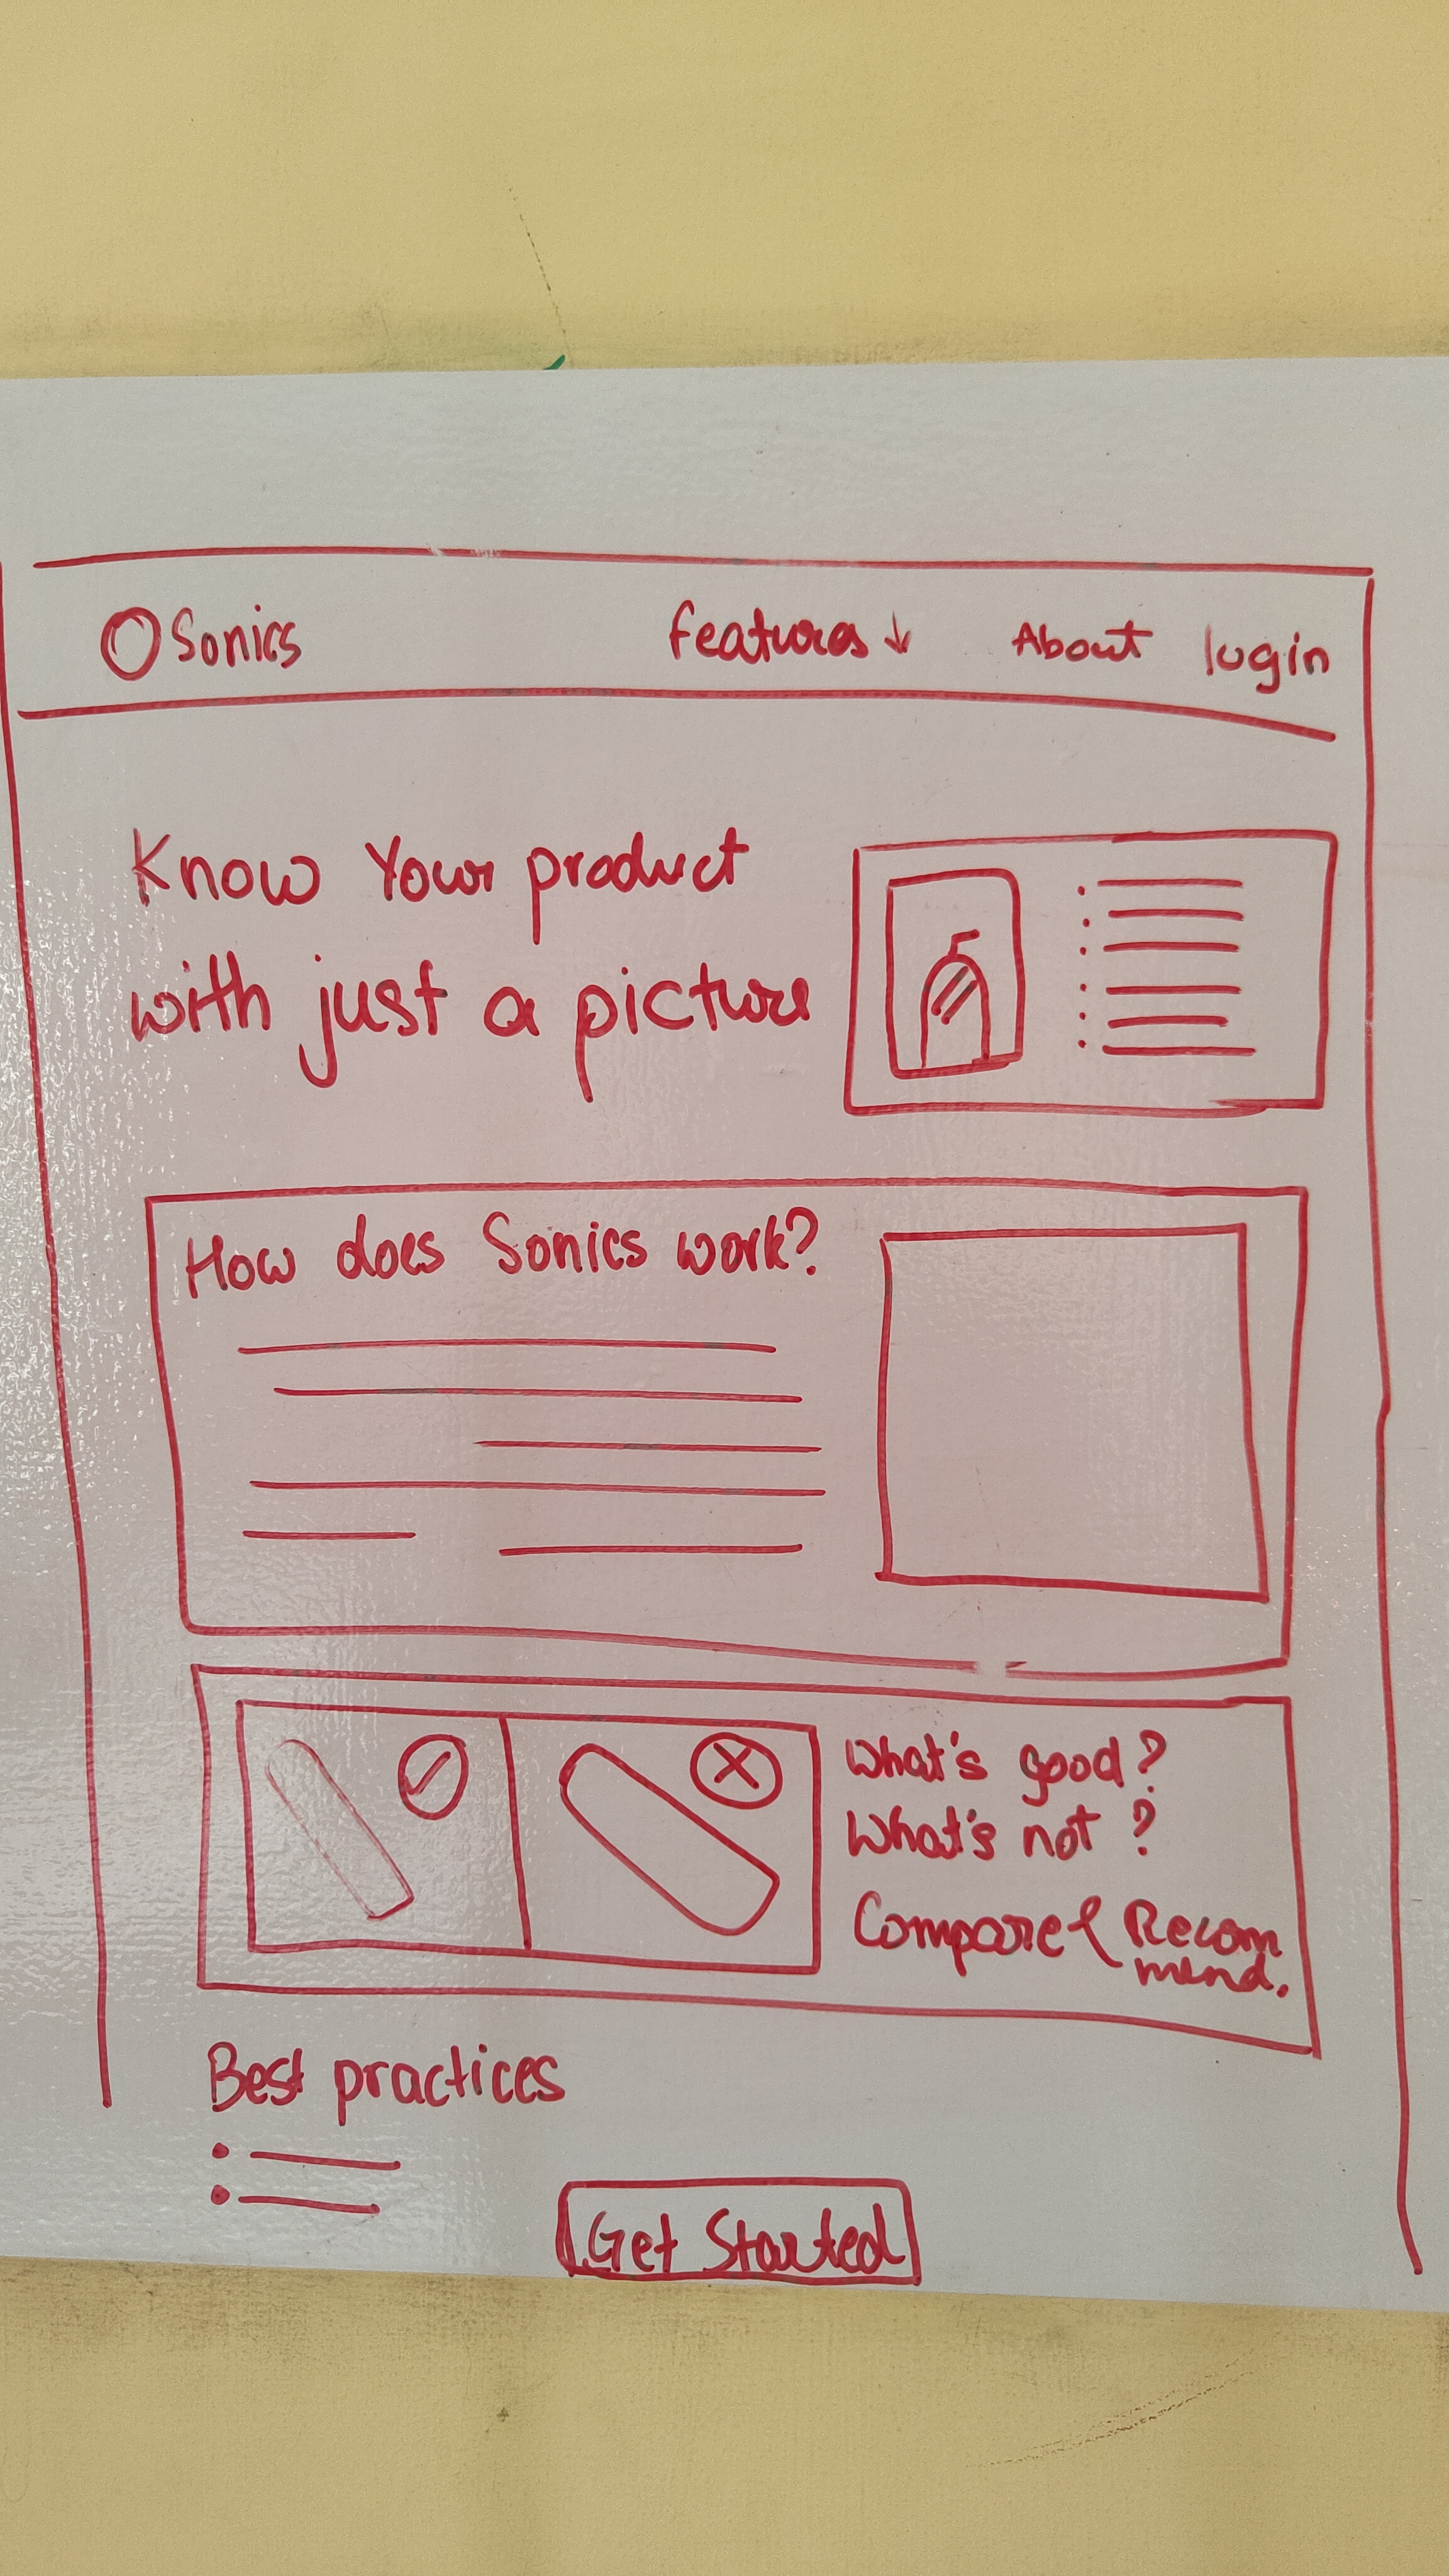 Sonics features ↓ About login
Know Your product
with just a picture
How does Sonics work?
What's good?
What's not ?
Compare & Recom
mend.
Best practices
Get Started